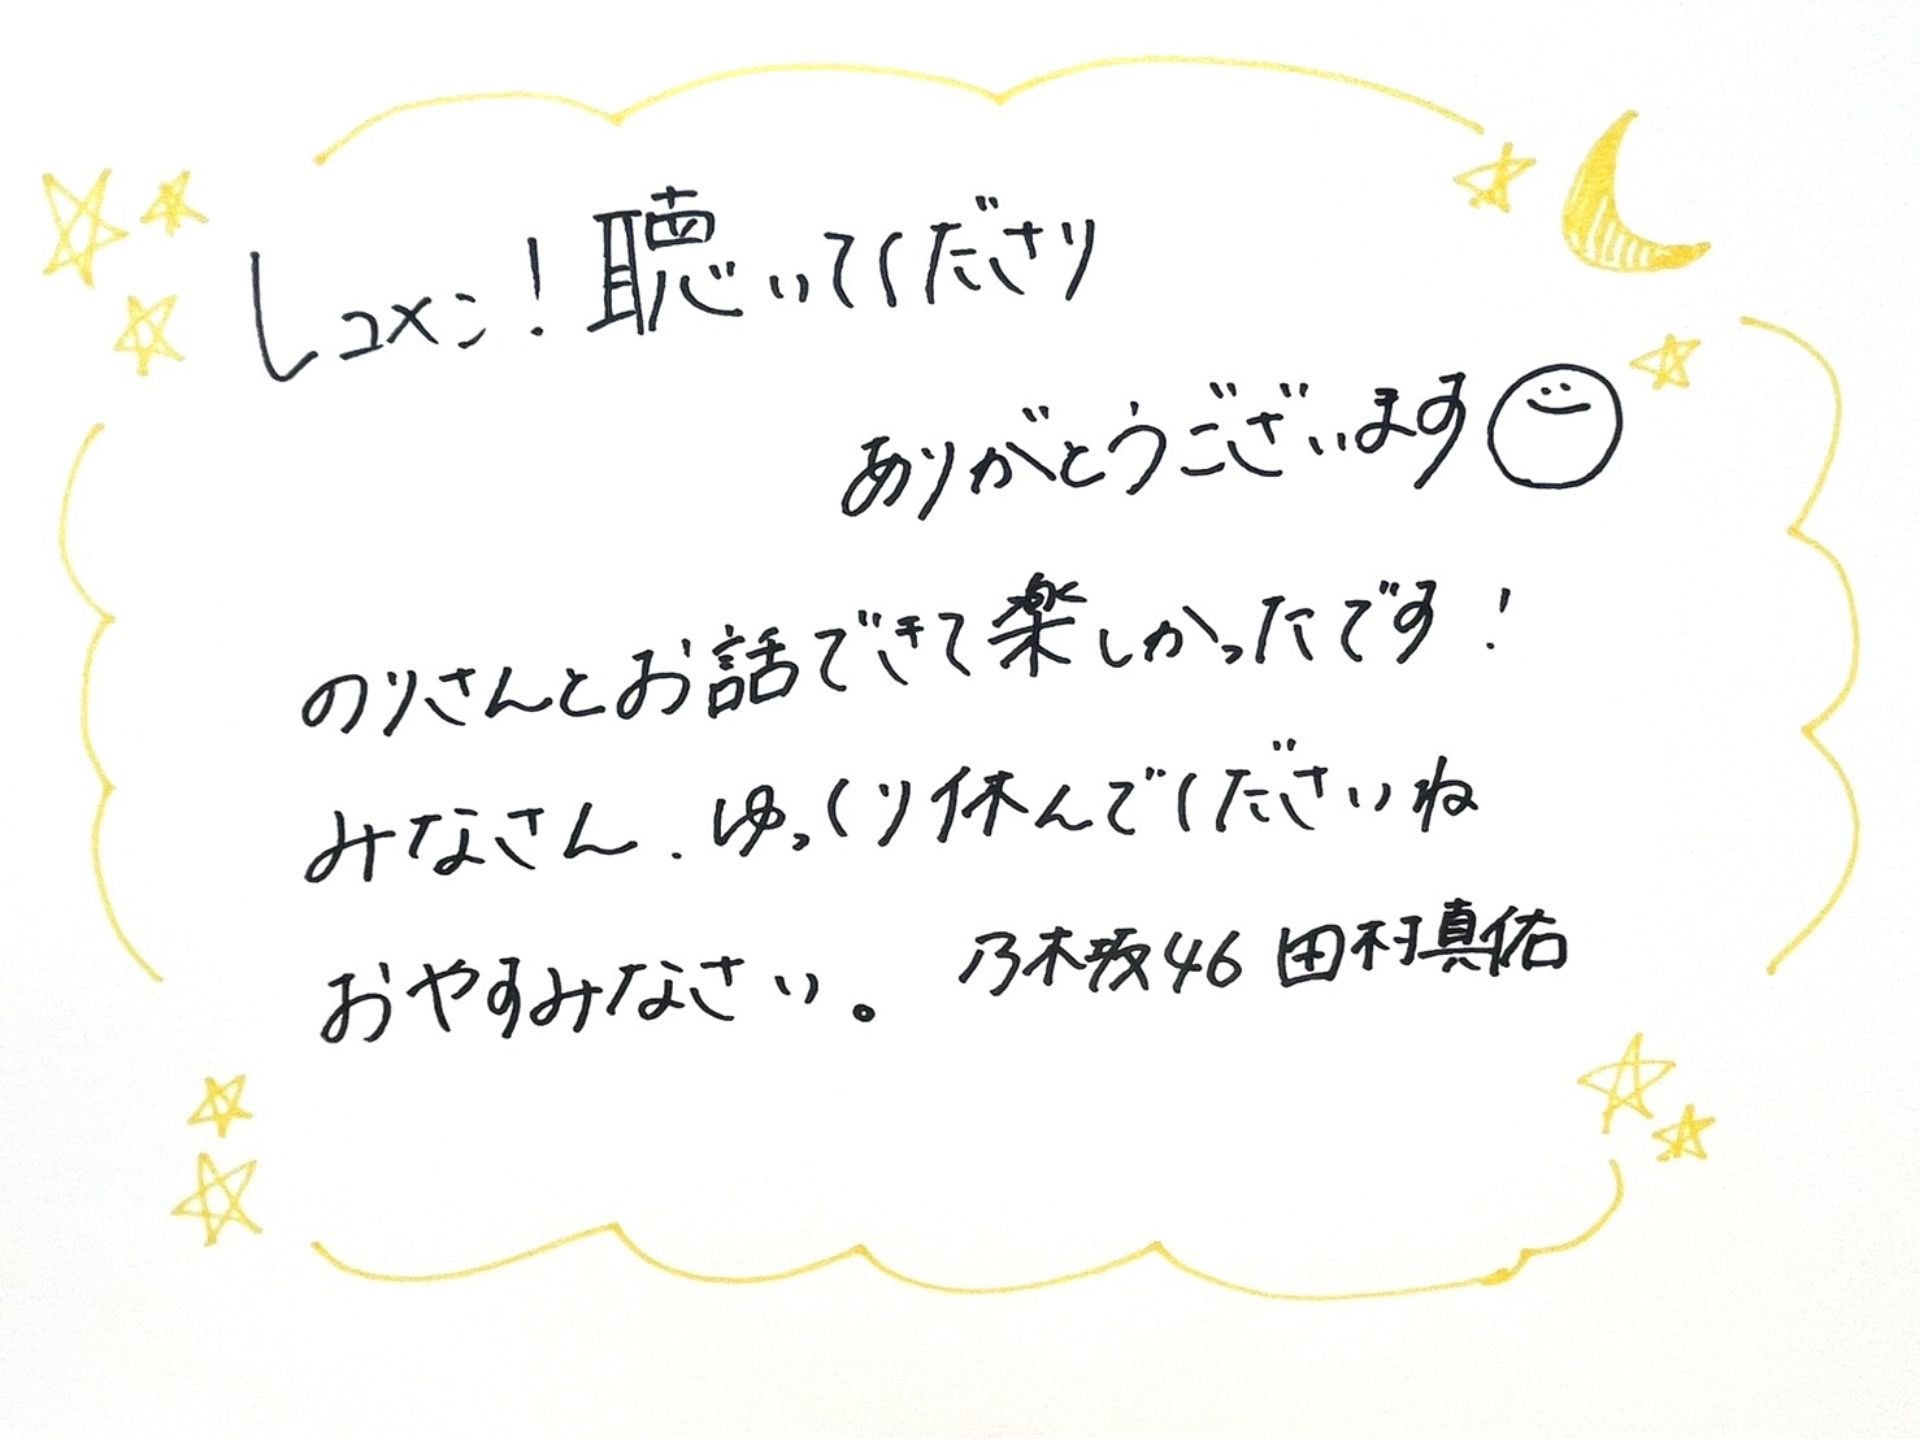 レコメン!聴いてくださり
ありがとうございます
のりさんとお話できて楽しかったです!
みなさん、ゆっくり休んでくださいね
おやすみなさい。 乃木坂46 田村真佑